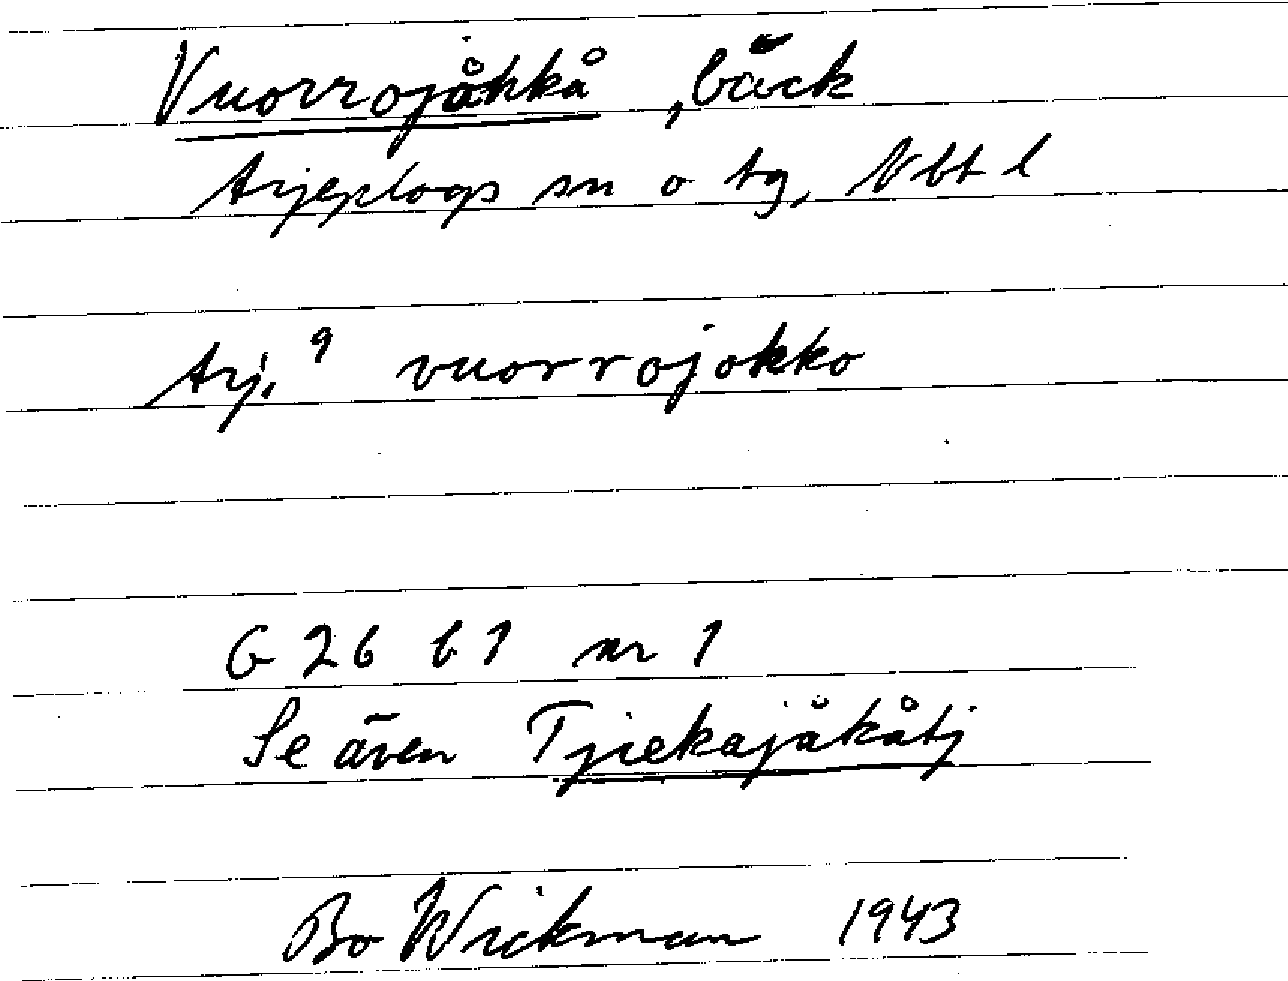 Vuorrojåhkå, bäck
Arjeplogs sn o tg, Nbt l
Arj. 9 vuorrojokko
G 26 b 1 nr 1
Se även Tjiekajåkåtj
Bo Wickman 1943